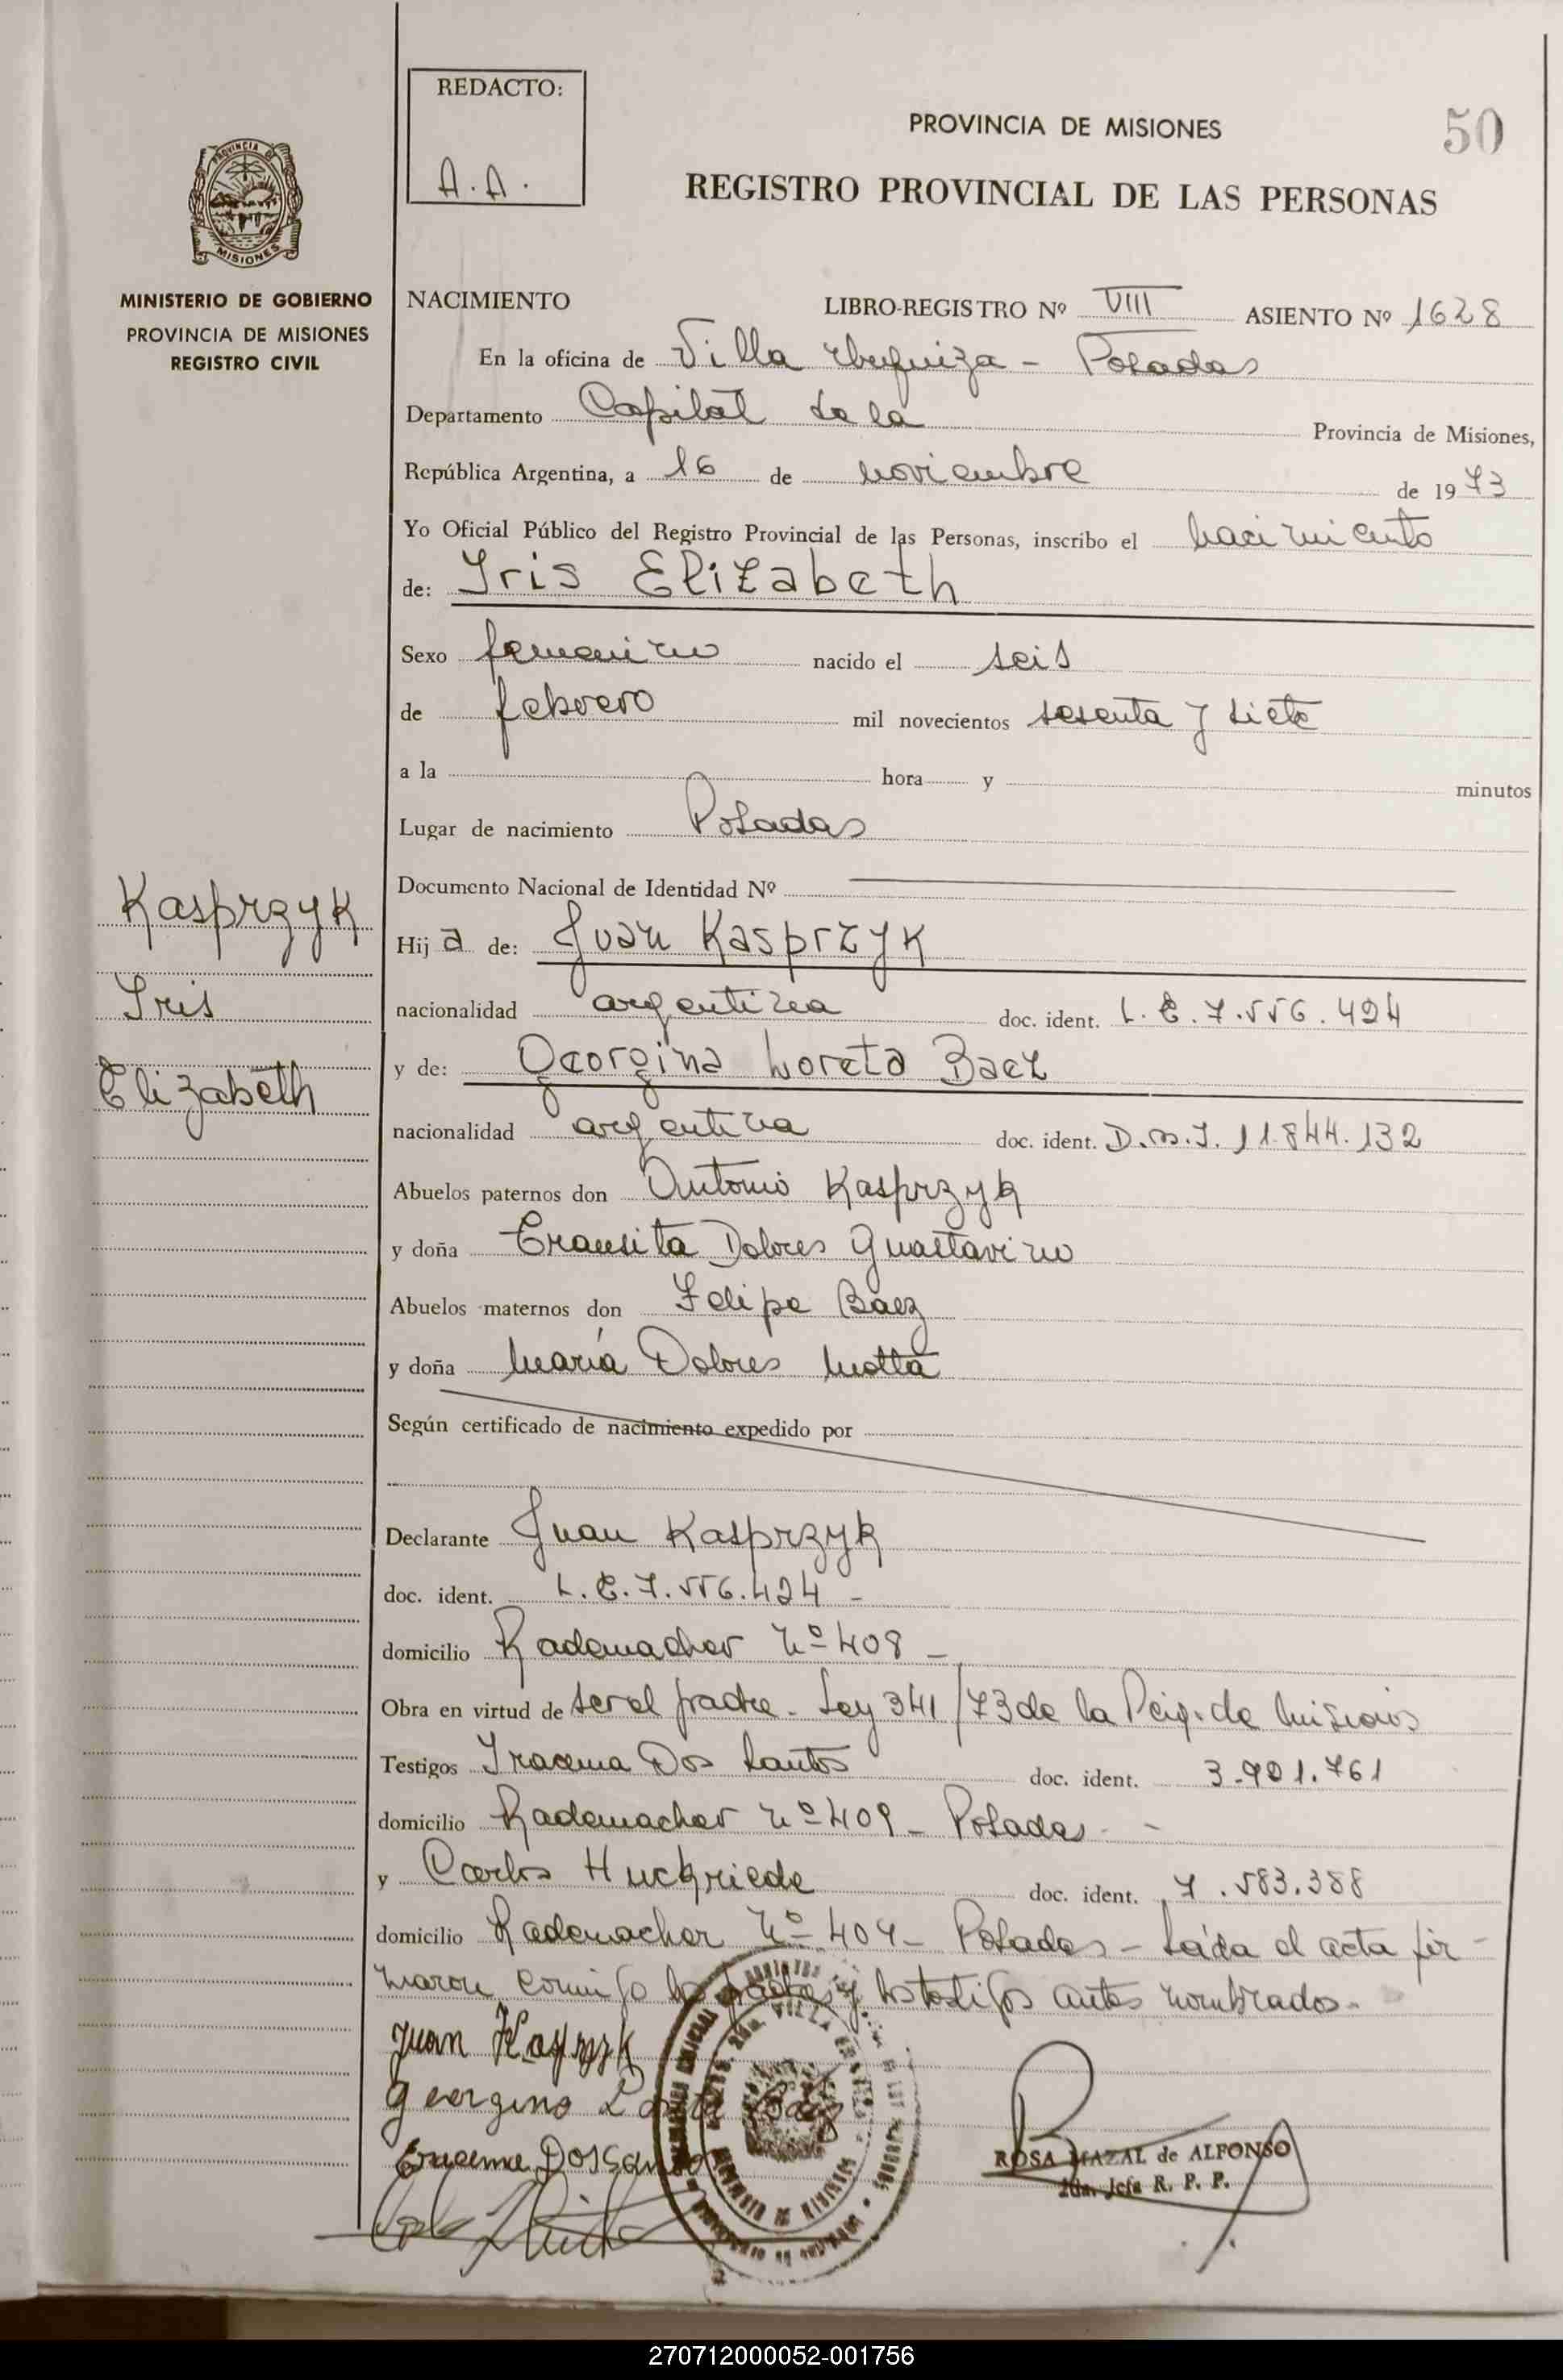 REDACTO:
A.A.
PROVINCIA DE MISIONES
50
REGISTRO PROVINCIAL DE LAS PERSONAS
PROVINCIA DE
MISIONES
MINISTERIO DE GOBIERNO
PROVINCIA DE MISIONES
REGISTRO CIVIL
NACIMIENTO LIBRO-REGISTRO Nº VIII ASIENTO Nº 1628
En la oficina de Villa Urquiza - Posadas
Departamento Capital de la Provincia de Misiones,
República Argentina, a 16 de noviembre de 1973
Yo Oficial Público del Registro Provincial de las Personas, inscribo el nacimiento
de: Iris Elizabeth
Sexo femenino nacido el seis
de febrero mil novecientos sesenta y siete
a la hora y minutos
Lugar de nacimiento Posadas
Documento Nacional de Identidad Nº
Kasprzyk
Iris
Elizabeth
Hija de: Juan Kasprzyk
nacionalidad argentina doc. ident. L.E.7.556.424
y de: Georgina Loreta Baez
nacionalidad argentina doc. ident. D.N.I. 11.844.132
Abuelos paternos don Antonio Kasprzyk
y doña Transita Dolores Guastavino
Abuelos maternos don Felipe Baez
y doña María Dolores Motta
Según certificado de nacimiento expedido por
Declarante Juan Kasprzyk
doc. ident. L.E.7.556.424 -
domicilio Rademacher Nº 408 -
Obra en virtud de ser el padre. Ley 341/73 de la Pcia. de Misiones
Testigos Iracema Dos Santos doc. ident. 3.901.761
domicilio Rademacher Nº 409 - Posadas -
y Carlos Huckriede doc. ident. 7.583.388
domicilio Rademacher Nº 404 - Posadas - Leída el acta fir-
maron conmigo los padres y los testigos antes nombrados.
Juan Kasprzyk
Georgina Loreta Baez
Iracema Dos Santos
ROSA MAZAL de ALFONSO
2da. Jefa R. P. P.
270712000052-001756